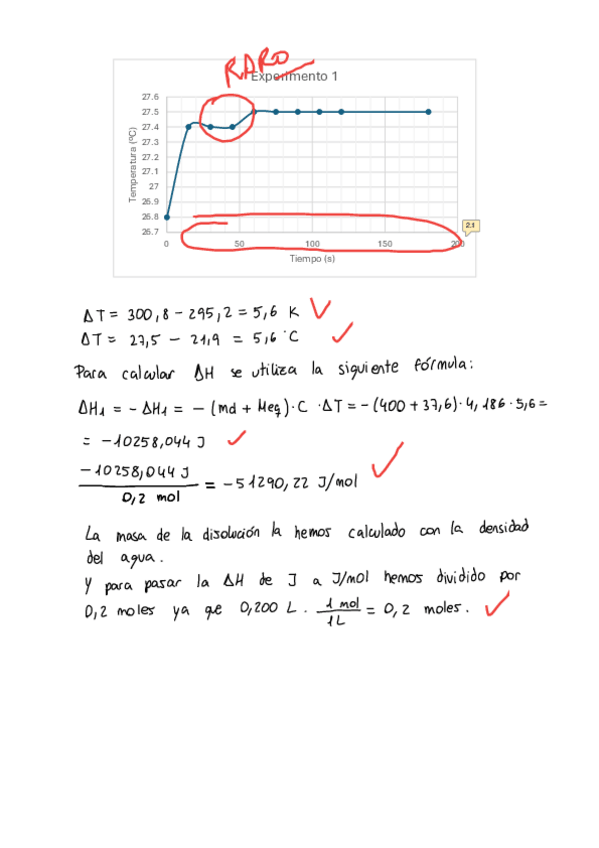 RARO
Experimento 1
27.6
27.5
27.4
27.3
27.2
27.1
27
26.9
26.8
26.7
Temperatura (ºC)
0 50 100 150 200
Tiempo (s)
2.1
ΔT = 300,8 - 295,2 = 5,6 K
ΔT = 27,5 - 21,9 = 5,6 °C
Para calcular ΔH se utiliza la siguiente fórmula:
ΔH1 = - ΔH1 = - (md + Meq) · C · ΔT = - (400 + 37,6) · 4,186 · 5,6 =
= -10258,044 J
-10258,044 J
0,2 mol
= -51290,22 J/mol
La masa de la disolución la hemos calculado con la densidad
del agua.
Y para pasar la ΔH de J a J/mol hemos dividido por
0,2 moles ya que 0,200 L · 1 mol / 1L = 0,2 moles.